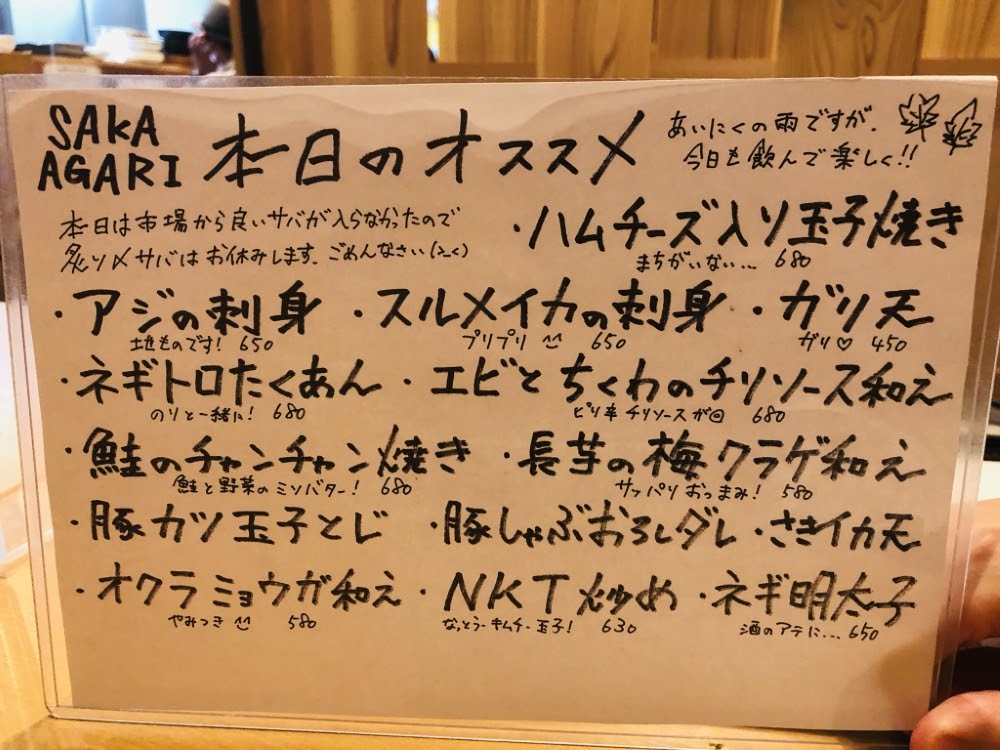 SAKA
AGARI
本日のオススメ
あいにくの雨ですが、
今日も飲んで楽しく!!
本日は市場から良いサバが入らなかったので
炙り〆サバはお休みします。ごめんなさい(ふく)
・ハムチーズ入り玉子焼き
まちがいない… 680
・アジの刺身 ・スルメイカの刺身 ・ガリ天
地ものです! 650 プリプリ 650 ガリ♡ 450
・ネギトロたくあん ・エビとちくわのチリソース和え
のりと一緒に! 680 ピリ辛チリソースが 680
・鮭のチャンチャン焼き ・長芋の梅クラゲ和え
鮭と野菜のミソバター! 680 サッパリおつまみ! 580
・豚カツ玉子とじ ・豚しゃぶおろしダレ ・さきイカ天
・オクラミョウガ和え ・NKT炒め ・ネギ明太子
やみつき 580 なっとう-キムチ-玉子! 630 酒のアテに… 650